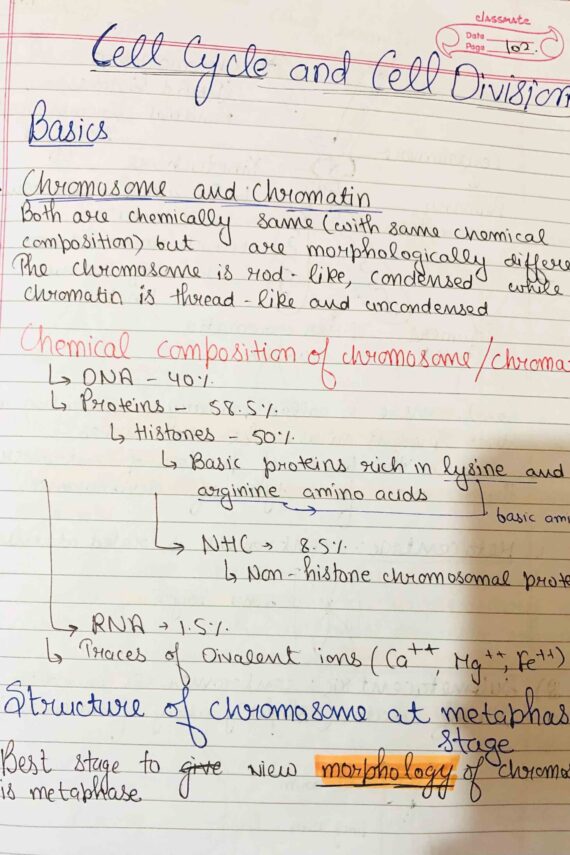 classmate
Date
Page 102
Cell Cycle and Cell Division
Basics
Chromosome and Chromatin
Both are chemically same (with same chemical
composition) but are morphologically differe
The chromosome is rod-like, condensed while
chromatin is thread-like and uncondensed
Chemical composition of chromosome/chroma
↳ DNA - 40%.
↳ Proteins - 58.5%.
↳ Histones - 50%.
↳ Basic proteins rich in lysine and
arginine amino acids
basic ami
↳ NHC → 8.5%.
↳ Non-histone chromosomal prote
↳ RNA → 1.5%.
↳ Traces of Divalent ions (Ca++, Mg++, Fe++)
Structure of chromosome at metaphas
stage
Best stage to give view morphology of chromo
is metaphase